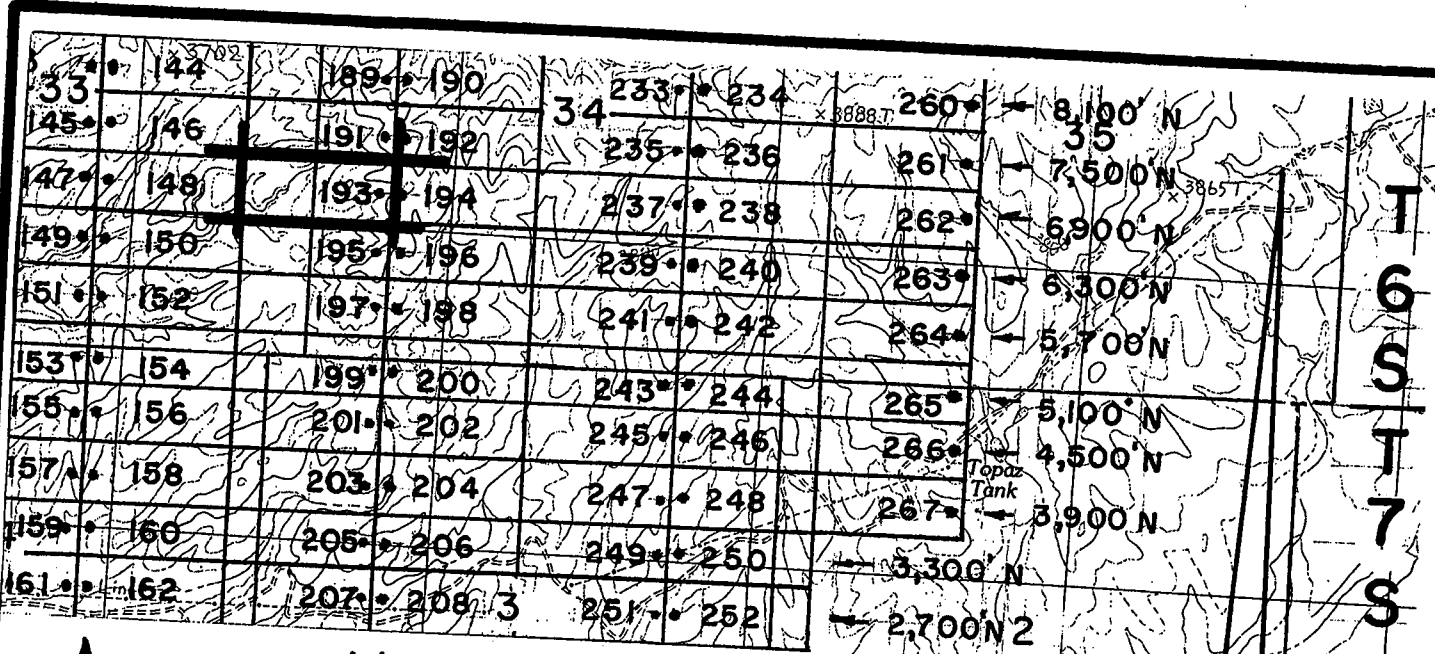 33 144 ×3702 189 190 34 233 234 ×3888T 260 8,100' N
145 146 191 192 235 236 261 35 7,500' N
147 148 193 194 237 238 262 3865T 6,900' N
149 150 195 196 239 240 263 6,300' N
151 152 197 198 241 242 264 5,700' N
153 154 199 200 243 244 265 5,100' N
155 156 201 202 245 246 266 4,500' N
Topaz
Tank
157 158 203 204 247 248 267 3,900 N
159 160 205 206 249 250 3,300' N
161 162 207 208 3 251 252 2,700' N 2
T
6
S
T
7
S